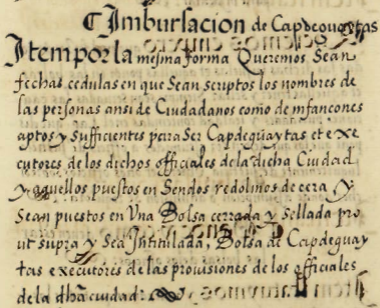 ¶ Imbursacion de Capdeguaytas
Item por la mesma forma Queremos Sean
fechas cedulas en que Sean scriptos los nombres de
las personas ansi de Ciudadanos como de infançones
aptos y Sufficientes para Ser Capdeguaytas et exe
cutores de los dichos officiales de la dicha Ciudad
y aquellos puestos en Sendos redolinos de cera y
Sean puestos en Una Bolsa cerrada y Sellada pro
ut supra y Sea Intitulada, Bolsa de Capdeguay
tas executores de las provisiones de los officiales
de la dha ciudad: